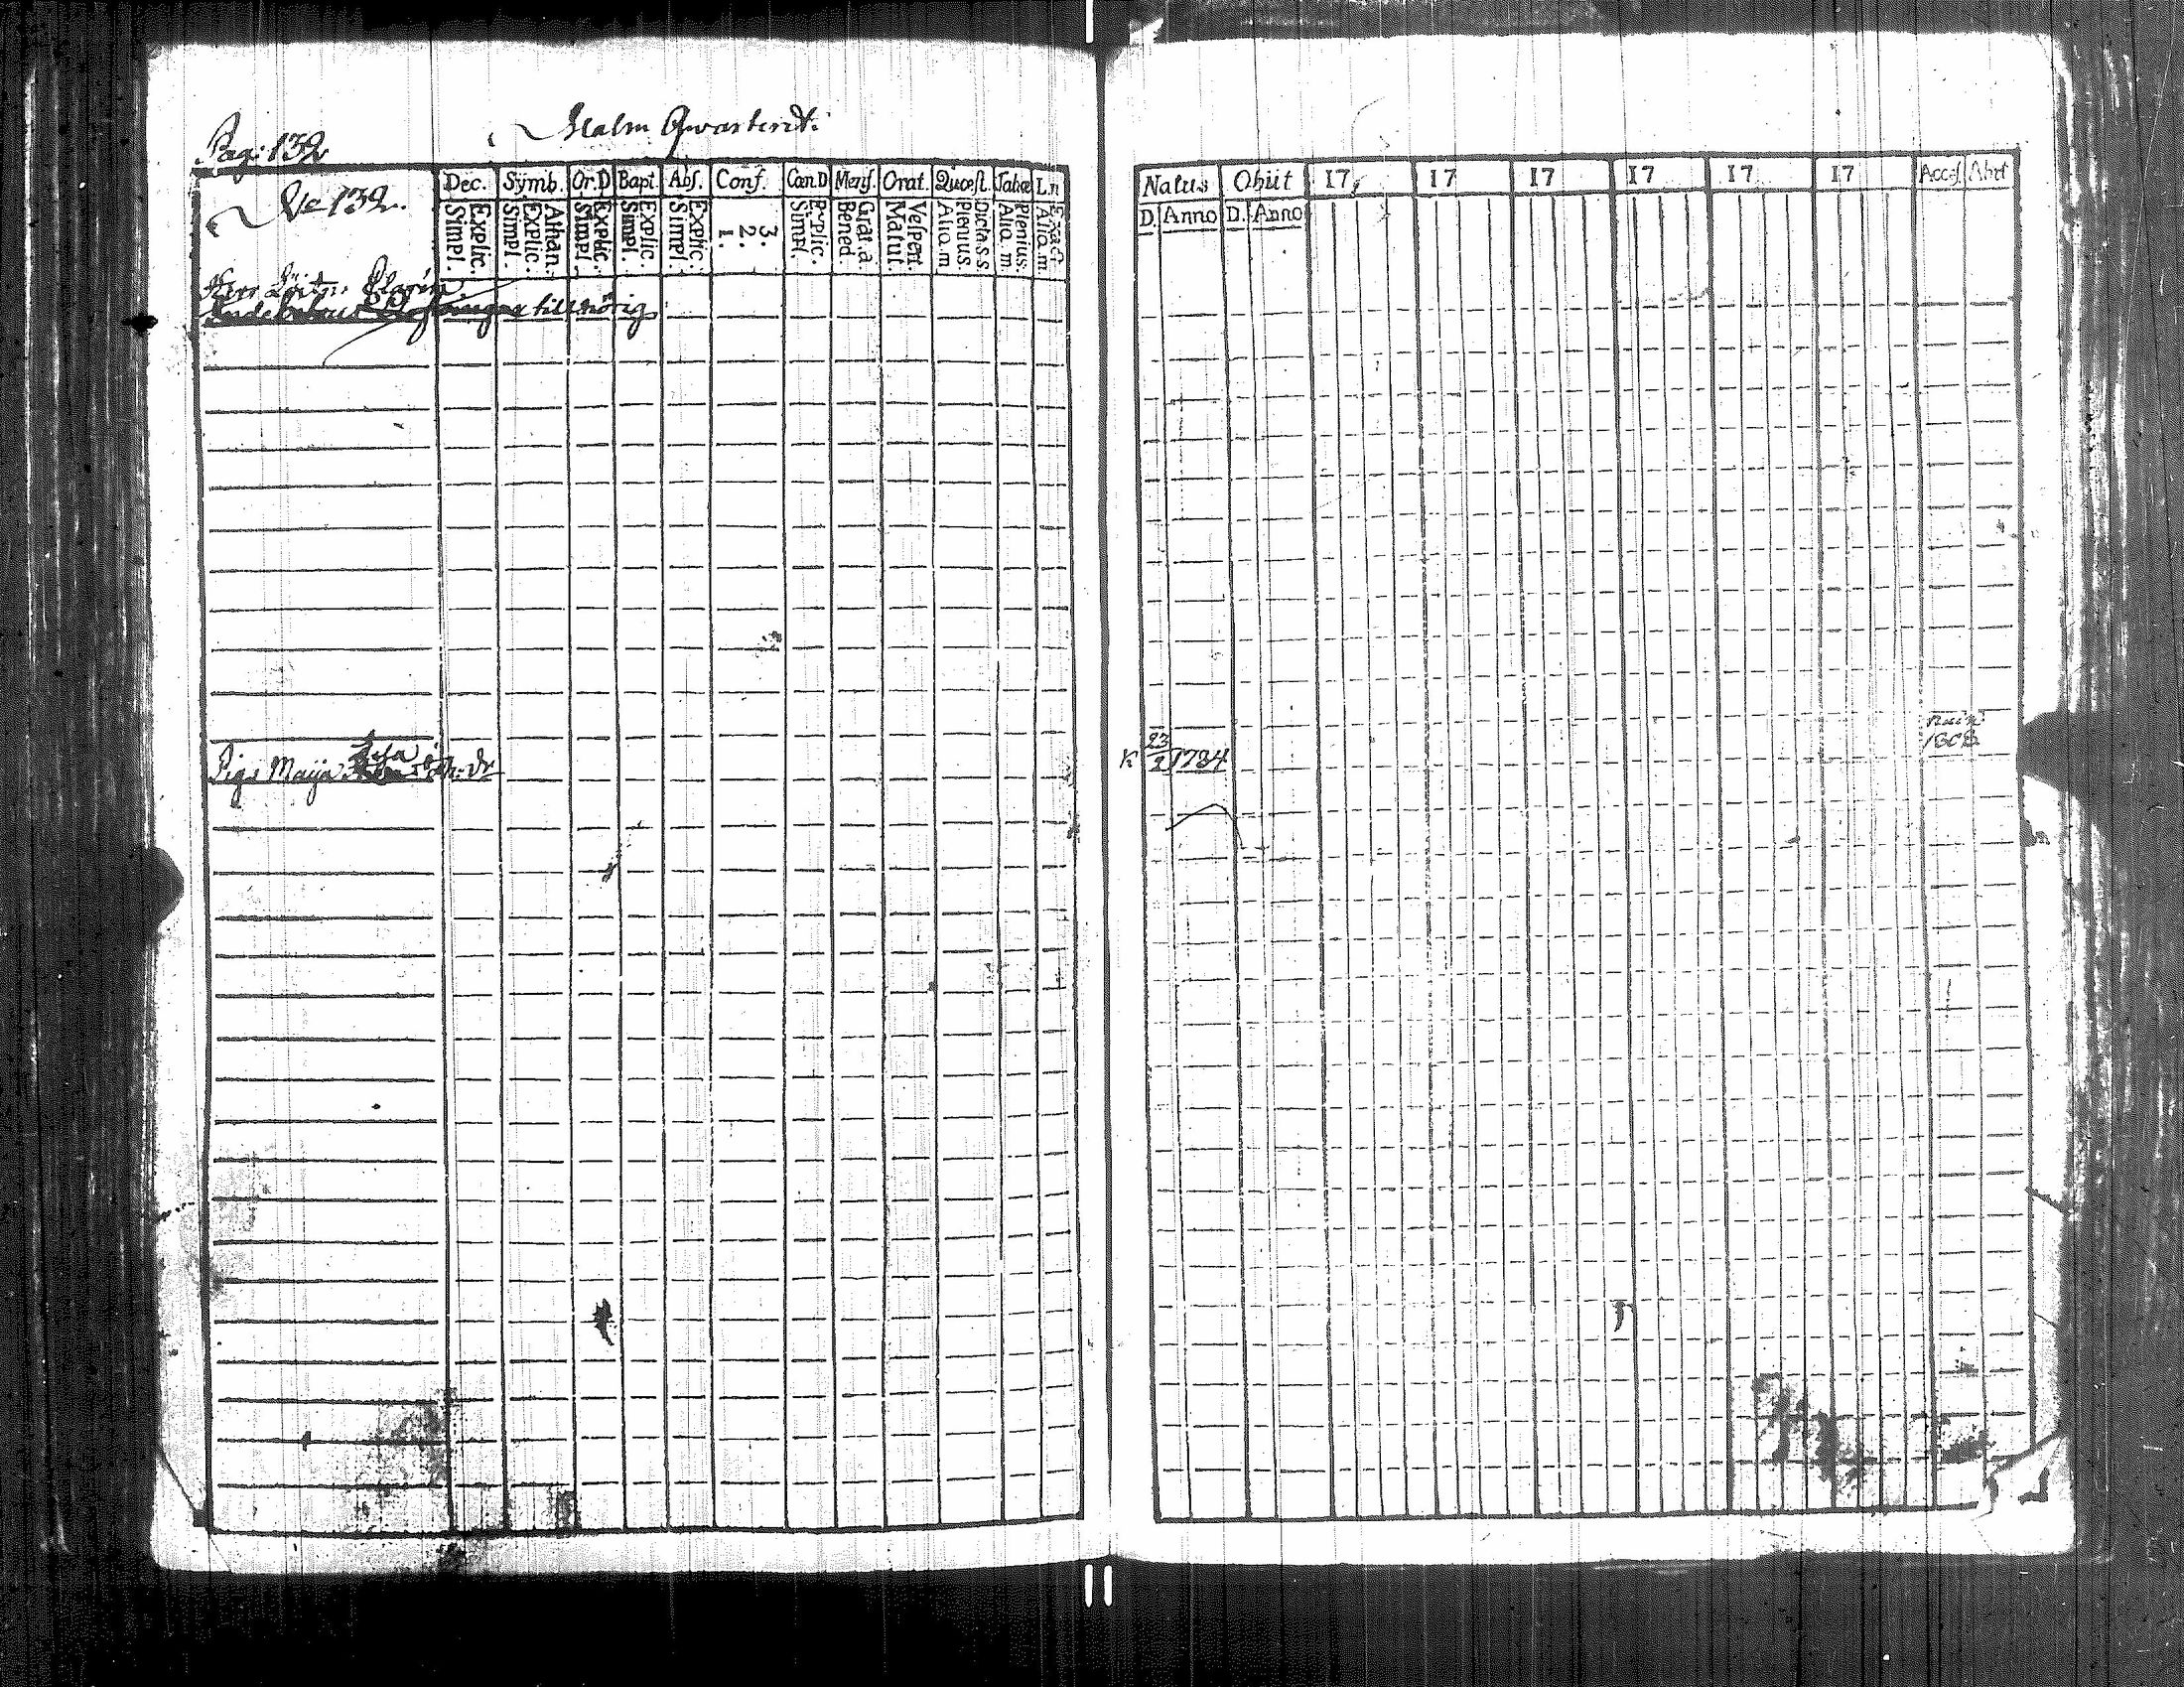 Malm Qvarteret.
Pag: 132
No 132.
Dec. Symb. Or.D Bapt. Abs. Conf. Cæn.D Mens. Orat. Quæst. Tabæ L.n
Simpl. Explic. Simpl. Explic. Athan. Simpl. Explic. Simpl. Explic. Simpl. Explic. 1. 2. 3. Simpl. Explic. Bened. Grat. a. Matut. Vespert. Alia.m. Plenius. Dicta.s.s. Alia.m. Plenius. Alia.m. Exact
Herr Löitn: Clarén
tillhörig
Piga Maija
Natus Obiit 17 17 17 17 17 17 Access Abiit
D. Anno D. Anno
23/2 1784
1808